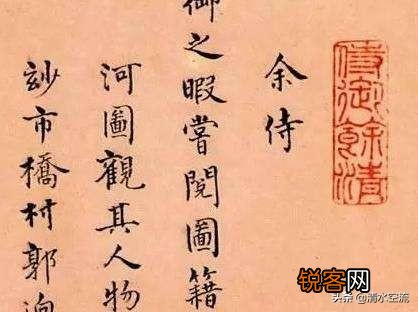 侍御餘清
余侍
御之暇嘗閱圖籍
河圖觀其人物
玅市橋村郭迥
锐客网
头条 @清水空流